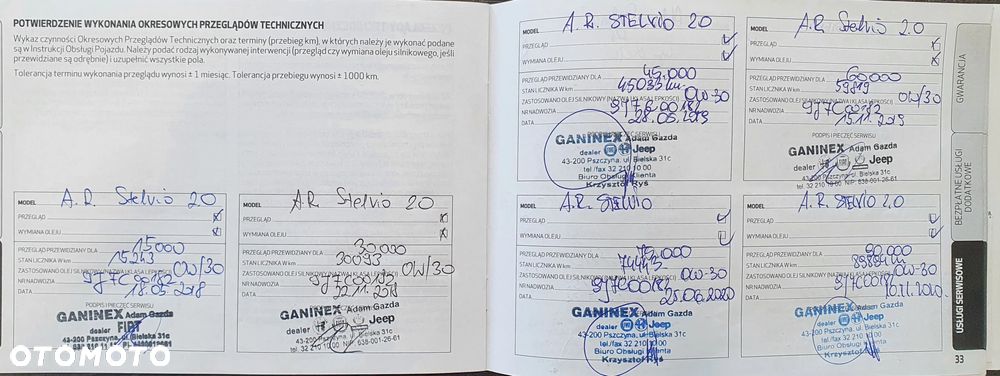 POTWIERDZENIE WYKONANIA OKRESOWYCH PRZEGLĄDÓW TECHNICZNYCH
Wykaz czynności Okresowych Przeglądów Technicznych oraz terminy (przebieg km), w których należy je wykonać podane
są w Instrukcji Obsługi Pojazdu. Należy podać rodzaj wykonywanej interwencji (przegląd czy wymiana oleju silnikowego, jeśli
przewidziane są odrębnie) i uzupełnić wszystkie pola.
Tolerancja terminu wykonania przeglądu wynosi ± 1 miesiąc. Tolerancja przebiegu wynosi ± 1000 km.
MODEL A.R. Stelvio 2.0
PRZEGLĄD
WYMIANA OLEJU
PRZEGLĄD PRZEWIDZIANY DLA 15000
STAN LICZNIKA W km 15243
ZASTOSOWANO OLEJ SILNIKOWY (NAZWA I KLASA LEPKOŚCI) 0W/30
NR NADWOZIA 97C00182
DATA 18.05.2018
PODPIS I PIECZĘĆ SERWISU
GANINEX Adam Gazda
dealer FIAT
43-200 Pszczyna, ul. Bielska 31c
MODEL A.R. Stelvio 2.0
PRZEGLĄD
WYMIANA OLEJU
PRZEGLĄD PRZEWIDZIANY DLA 30000
STAN LICZNIKA W km 30093
ZASTOSOWANO OLEJ SILNIKOWY (NAZWA I KLASA LEPKOŚCI) 0W/30
NR NADWOZIA 97C00182
DATA
PODPIS I PIECZĘĆ SERWISU
GANINEX Adam Gazda
dealer Jeep
43-200 Pszczyna, ul. Bielska 31c
tel. 32 210 10 00 NIP: 638-001-26-61
MODEL A.R. STELVIO 2.0
PRZEGLĄD
WYMIANA OLEJU
PRZEGLĄD PRZEWIDZIANY DLA 45.000
STAN LICZNIKA W km 45033 km
ZASTOSOWANO OLEJ SILNIKOWY (NAZWA I KLASA LEPKOŚCI) 0W-30
NR NADWOZIA 97C00182
DATA 28.05.2019
GANINEX Adam Gazda
dealer Jeep
43-200 Pszczyna, ul. Bielska 31c
tel./fax 32 210 10 00
Biuro Obsługi Klienta
Krzysztof Ryś
MODEL A.R. Stelvio 2.0
PRZEGLĄD
WYMIANA OLEJU
PRZEGLĄD PRZEWIDZIANY DLA 60000
STAN LICZNIKA W km 59819
ZASTOSOWANO OLEJ SILNIKOWY (NAZWA I KLASA LEPKOŚCI) 0W/30
NR NADWOZIA 97C00182
DATA 15.11.2019
PODPIS I PIECZĘĆ SERWISU
GANINEX Adam Gazda
dealer Jeep
43-200 Pszczyna, ul. Bielska 31c
tel. 32 210 10 00 NIP: 638-001-26-61
MODEL A.R. STELVIO
PRZEGLĄD
WYMIANA OLEJU
PRZEGLĄD PRZEWIDZIANY DLA 75.000
STAN LICZNIKA W km 74443
ZASTOSOWANO OLEJ SILNIKOWY (NAZWA I KLASA LEPKOŚCI) 0W-30
NR NADWOZIA 97C00182
DATA 25.06.2020
GANINEX Adam Gazda
dealer Jeep
43-200 Pszczyna, ul. Bielska 31c
tel./fax 32 210 10 00
Biuro Obsługi Klienta
Krzysztof Ryś
MODEL A.R. STELVIO 2.0
PRZEGLĄD
WYMIANA OLEJU
PRZEGLĄD PRZEWIDZIANY DLA 90.000
STAN LICZNIKA W km
ZASTOSOWANO OLEJ SILNIKOWY (NAZWA I KLASA LEPKOŚCI) 0W-30
NR NADWOZIA 97C00182
DATA 10.11.2020
GANINEX Adam Gazda
dealer Jeep
43-200 Pszczyna, ul. Bielska 31c
tel./fax 32 210 10 00
Biuro Obsługi Klienta
Krzysztof Ryś
GWARANCJA
BEZPŁATNE USŁUGI
DODATKOWE
USŁUGI SERWISOWE
33
OTOMOTO